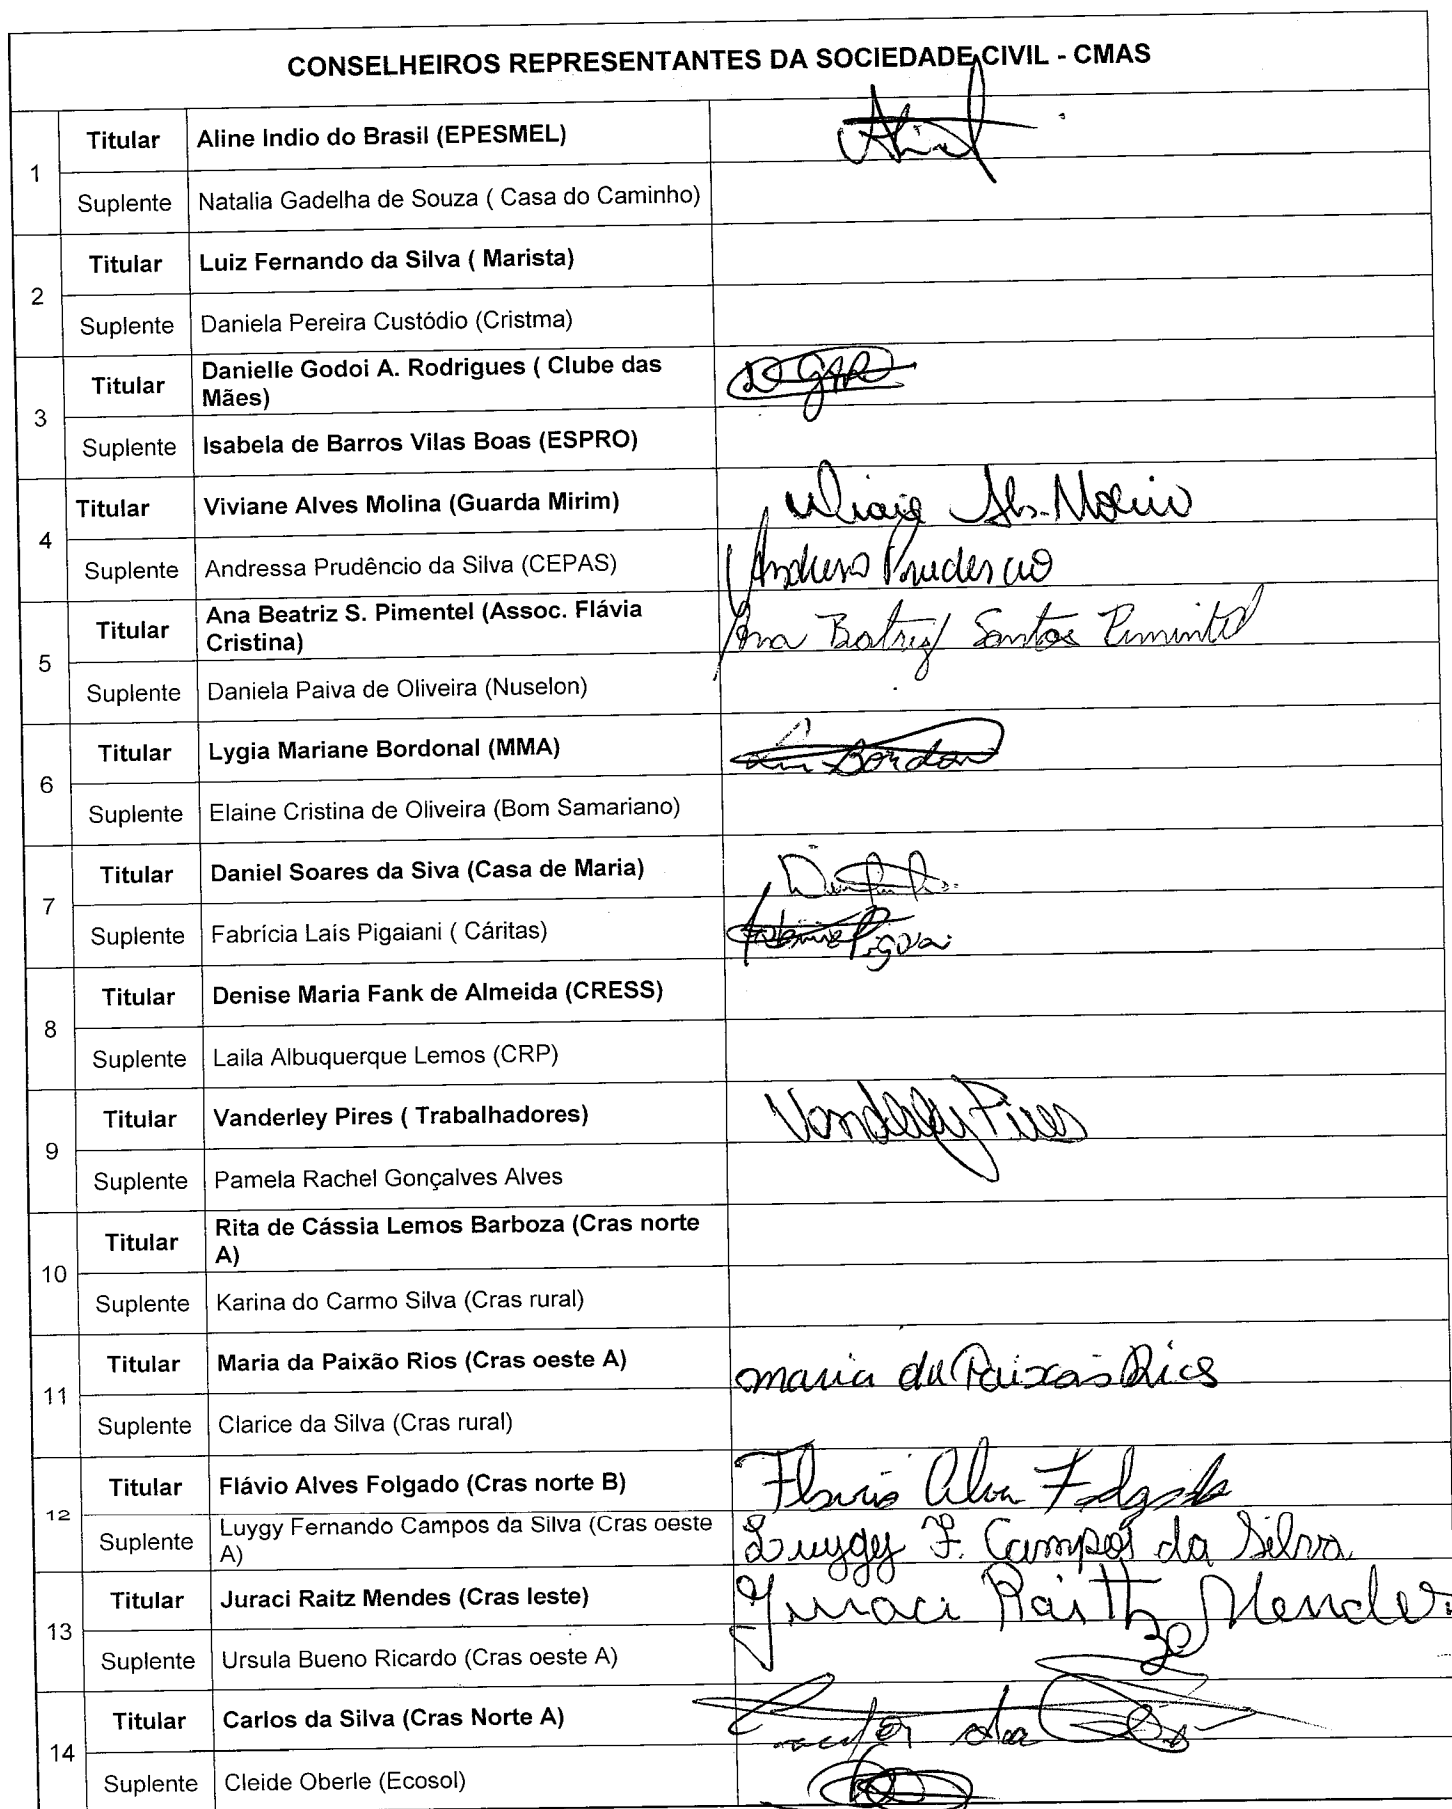 CONSELHEIROS REPRESENTANTES DA SOCIEDADE CIVIL - CMAS
1
Titular Aline Indio do Brasil (EPESMEL)
Suplente Natalia Gadelha de Souza ( Casa do Caminho)
2
Titular Luiz Fernando da Silva ( Marista)
Suplente Daniela Pereira Custódio (Cristma)
3
Titular Danielle Godoi A. Rodrigues ( Clube das
Mães)
Suplente Isabela de Barros Vilas Boas (ESPRO)
4
Titular Viviane Alves Molina (Guarda Mirim)
Suplente Andressa Prudêncio da Silva (CEPAS)
5
Titular Ana Beatriz S. Pimentel (Assoc. Flávia
Cristina)
Ana Beatriz Santos Pimentel
Suplente Daniela Paiva de Oliveira (Nuselon)
6
Titular Lygia Mariane Bordonal (MMA)
Suplente Elaine Cristina de Oliveira (Bom Samariano)
7
Titular Daniel Soares da Siva (Casa de Maria)
Suplente Fabrícia Laís Pigaiani ( Cáritas)
8
Titular Denise Maria Fank de Almeida (CRESS)
Suplente Laila Albuquerque Lemos (CRP)
9
Titular Vanderley Pires ( Trabalhadores) Vanderley Pires
Suplente Pamela Rachel Gonçalves Alves
10
Titular Rita de Cássia Lemos Barboza (Cras norte
A)
Suplente Karina do Carmo Silva (Cras rural)
11
Titular Maria da Paixão Rios (Cras oeste A) maria da Paixão Rios
Suplente Clarice da Silva (Cras rural)
12
Titular Flávio Alves Folgado (Cras norte B) Flavio Alves Folgado
Suplente Luygy Fernando Campos da Silva (Cras oeste
A)
Luygy F. Campos da Silva
13
Titular Juraci Raitz Mendes (Cras leste) Juraci Raitz Mendes
Suplente Ursula Bueno Ricardo (Cras oeste A)
14
Titular Carlos da Silva (Cras Norte A)
Suplente Cleide Oberle (Ecosol)